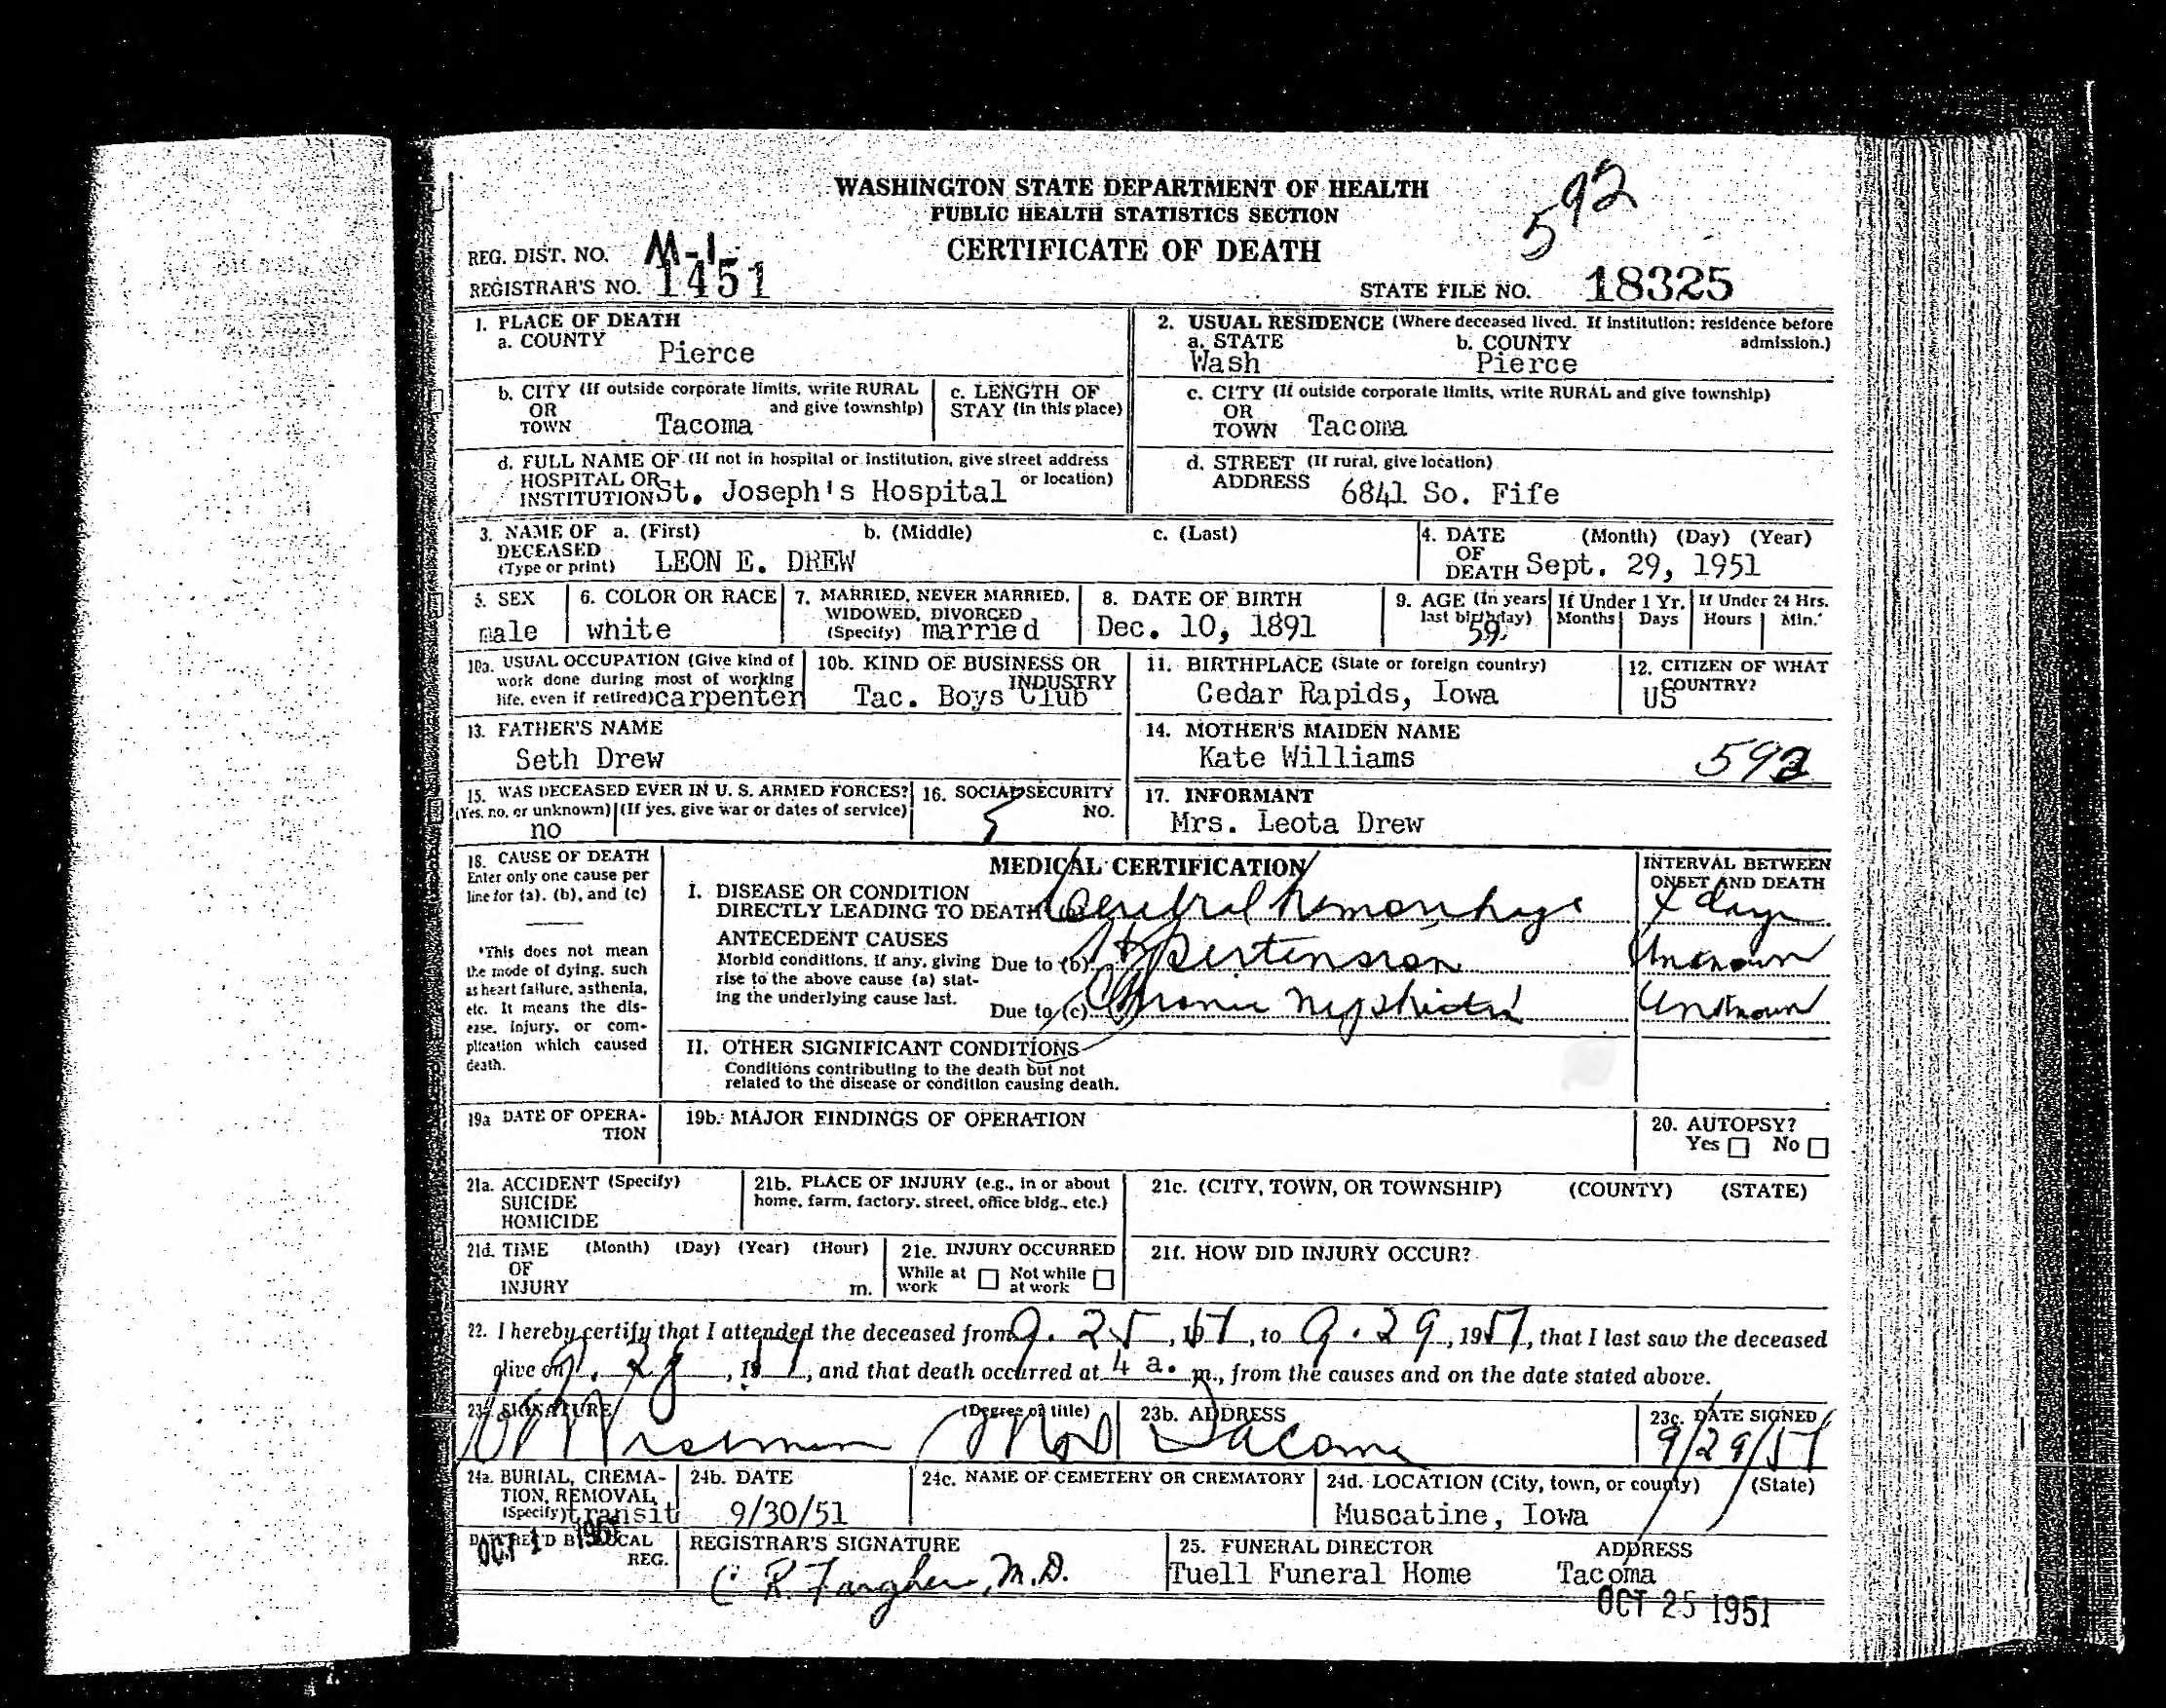 WASHINGTON STATE DEPARTMENT OF HEALTH
PUBLIC HEALTH STATISTICS SECTION
CERTIFICATE OF DEATH
592
REG. DIST. NO. M-1
REGISTRAR'S NO. 1451
STATE FILE NO. 18325
1. PLACE OF DEATH
a. COUNTY Pierce
b. CITY (If outside corporate limits, write RURAL and give township)
OR TOWN Tacoma
c. LENGTH OF STAY (in this place)
d. FULL NAME OF (If not in hospital or institution, give street address or location)
HOSPITAL OR INSTITUTION St. Joseph's Hospital
2. USUAL RESIDENCE (Where deceased lived. If institution: residence before admission.)
a. STATE Wash
b. COUNTY Pierce
c. CITY (If outside corporate limits, write RURAL and give township)
OR TOWN Tacoma
d. STREET (If rural, give location)
ADDRESS 6841 So. Fife
3. NAME OF DECEASED (Type or print) a. (First) b. (Middle) c. (Last)
LEON E. DREW
4. DATE OF DEATH (Month) (Day) (Year)
Sept. 29, 1951
5. SEX male
6. COLOR OR RACE white
7. MARRIED, NEVER MARRIED, WIDOWED, DIVORCED (Specify) married
8. DATE OF BIRTH Dec. 10, 1891
9. AGE (In years last birthday) 59
If Under 1 Yr. Months Days
If Under 24 Hrs. Hours Min.
10a. USUAL OCCUPATION (Give kind of work done during most of working life, even if retired) carpenter
10b. KIND OF BUSINESS OR INDUSTRY Tac. Boys Club
11. BIRTHPLACE (State or foreign country) Cedar Rapids, Iowa
12. CITIZEN OF WHAT COUNTRY? US
13. FATHER'S NAME
Seth Drew
14. MOTHER'S MAIDEN NAME
Kate Williams
592
15. WAS DECEASED EVER IN U. S. ARMED FORCES?
(Yes, no, or unknown) (If yes, give war or dates of service)
no
16. SOCIAL SECURITY NO.
17. INFORMANT
Mrs. Leota Drew
18. CAUSE OF DEATH
Enter only one cause per line for (a), (b), and (c)
*This does not mean the mode of dying, such as heart failure, asthenia, etc. It means the disease, injury, or complication which caused death.
MEDICAL CERTIFICATION
INTERVAL BETWEEN ONSET AND DEATH
I. DISEASE OR CONDITION
DIRECTLY LEADING TO DEATH (a) Cerebral hemorrhage days
ANTECEDENT CAUSES
Morbid conditions, if any, giving rise to the above cause (a) stating the underlying cause last.
Due to (b) Hypertension Unknown
Due to (c) Chronic Nephritis Unknown
II. OTHER SIGNIFICANT CONDITIONS
Conditions contributing to the death but not related to the disease or condition causing death.
19a DATE OF OPERATION
19b. MAJOR FINDINGS OF OPERATION
20. AUTOPSY?
Yes No
21a. ACCIDENT (Specify)
SUICIDE
HOMICIDE
21b. PLACE OF INJURY (e.g., in or about home, farm, factory, street, office bldg., etc.)
21c. (CITY, TOWN, OR TOWNSHIP) (COUNTY) (STATE)
21d. TIME OF INJURY (Month) (Day) (Year) (Hour) m.
21e. INJURY OCCURRED
While at work Not while at work
21f. HOW DID INJURY OCCUR?
22. I hereby certify that I attended the deceased from 9. 25, 1951, to 9. 29, 1951, that I last saw the deceased
alive on 9. 28, 1951, and that death occurred at 4 a. m., from the causes and on the date stated above.
23a. SIGNATURE (Degree or title) MD
23b. ADDRESS Tacoma
23c. DATE SIGNED 9/29/51
24a. BURIAL, CREMATION, REMOVAL (Specify) transit
24b. DATE 9/30/51
24c. NAME OF CEMETERY OR CREMATORY
24d. LOCATION (City, town, or county) (State)
Muscatine, Iowa
DATE REC'D BY LOCAL REG. OCT 1 1951
REGISTRAR'S SIGNATURE
C R. Fargher, M.D.
25. FUNERAL DIRECTOR ADDRESS
Tuell Funeral Home Tacoma
OCT 25 1951